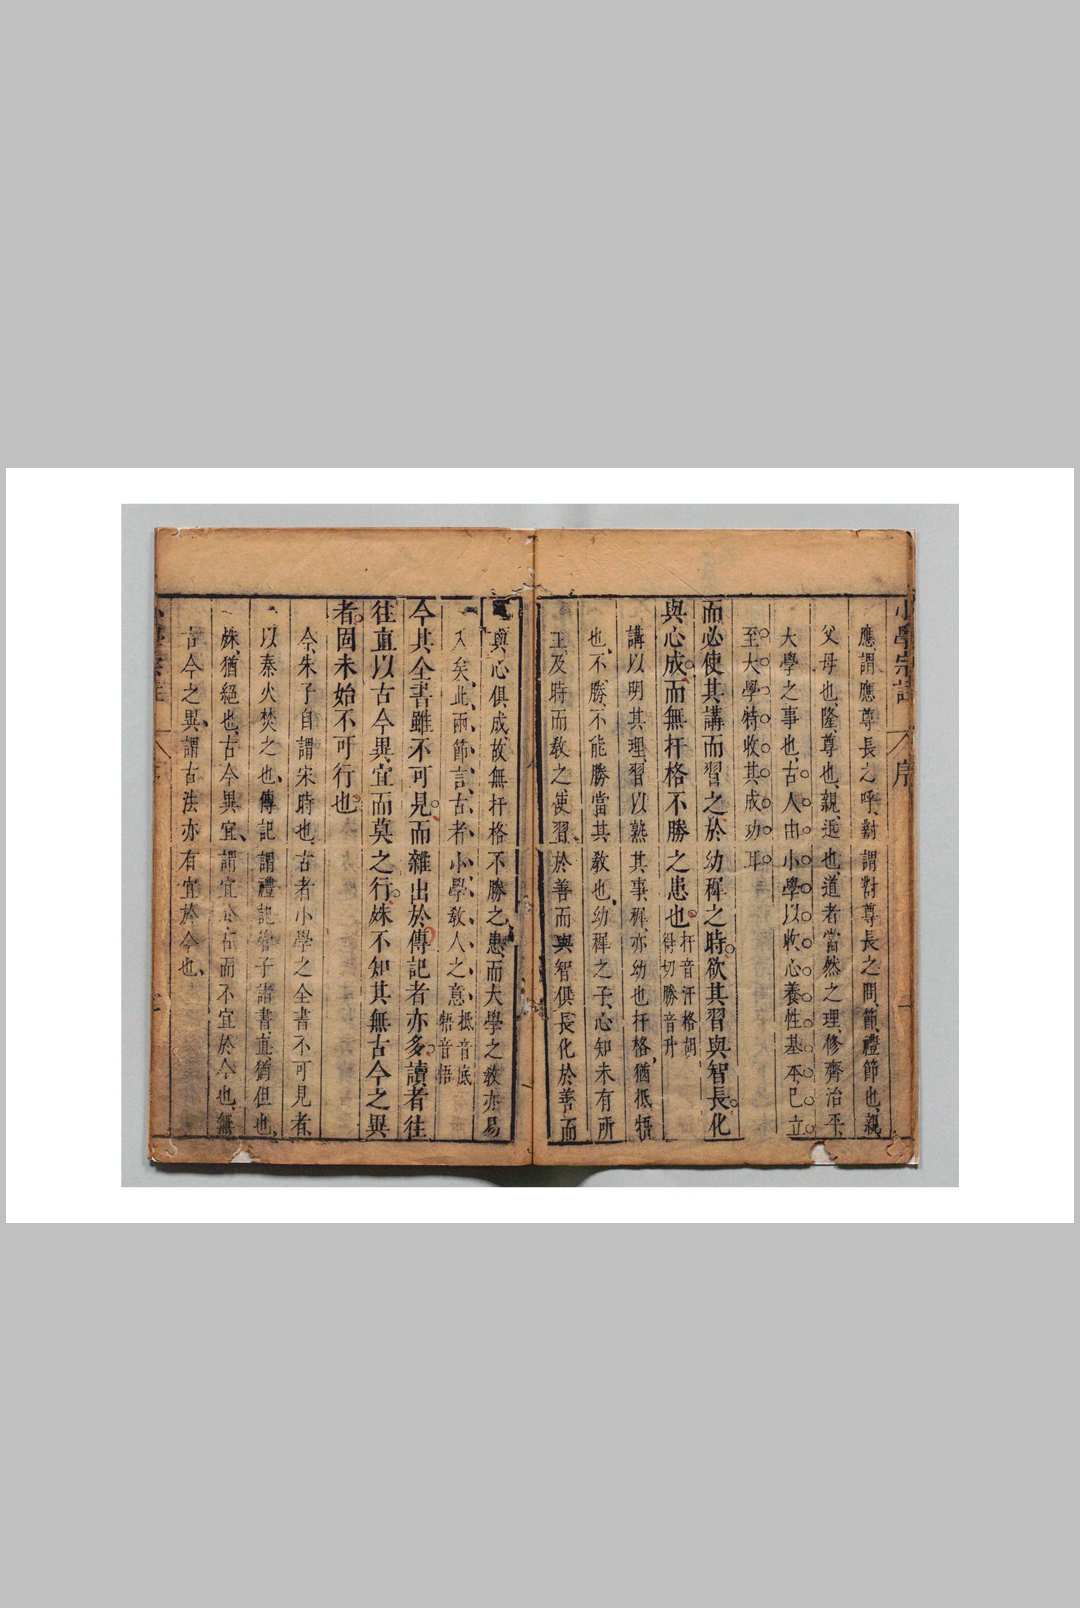 應謂應尊長之呼、對謂對尊長之問、節禮節也、親
父母也、隆尊也、親近也、道者當然之理、修齊治平
大學之事也、古人由小學以收心養性、基本已立
至大學特收其成功耳
而必使其講而習之於幼穉之時。欲其習與智長。化
與心成。而無扞格不勝之患也。扞音汗格胡得切勝音升
講以明其理、習以熟其事、穉亦幼也、扞格猶抵牾
也、不勝不能勝當其教也、幼穉之子、心知未有所
主、及時而教之使習、於善而與智俱長化於善、而
與心俱成、故無扞格不勝之患、而大學之教亦易
入矣、此兩節言古者小學教人之意抵音底牾音悟
今其全書雖不可見。而雜出於傳記者亦多。讀者往
往直以古今異宜而莫之行。殊不知其無古今之異
者。固未始不可行也。
今朱子自謂宋時也、古者小學之全書不可見者
以秦火焚之也、傳記謂禮記管子諸書、直猶但也
殊猶絕也、古今異宜、謂宜於古而不宜於今也、無
古今之異、謂古法亦有宜於今也、